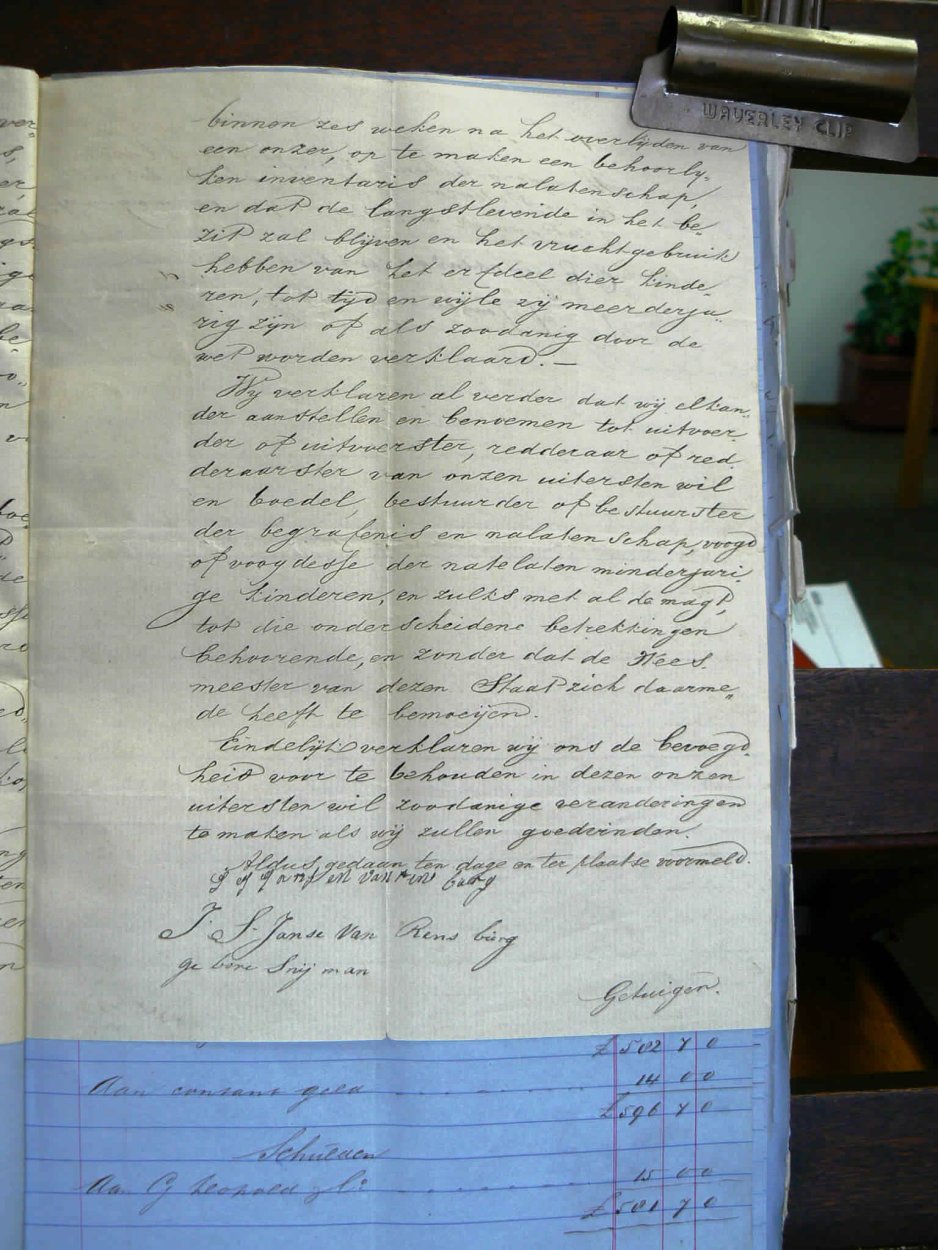 WAVERLEY CLIP
binnen zes weken na het overlijden van
een onzer, op te maken een behoorly-
ken inventaris der nalatenschap,
en dat de langstlevende in het be-
zit zal blijven en het vruchtgebruik
hebben van het erfdeel dier kinde-
ren, tot tijd en wijle zij meerderja-
rig zijn of als zoodanig door de
wet worden verklaard. —
Wy verklaren al verder dat wij elkan-
der aanstellen en benoemen tot uitvoer-
der of uitvoerster, redderaar of red-
deraarster van onzen uitersten wil
en boedel, bestuurder of bestuurster
der begrafenis en nalatenschap, voogd
of voogdesse der natelaten minderjari-
ge kinderen, en zulks met al de magt,
tot die onderscheidene betrekkingen
behoorende, en zonder dat de Wees
meester van dezen Staat zich daarme„
de heeft te bemoeijen.
Eindelijk verklaren wij ons de bevoegd-
heid voor te behouden in dezen onzen
uitersten wil zoodanige veranderingen
te maken als wij zullen goedvinden.
Aldus gedaan ten dage en ter plaatse voormeld.
J. S. Janse Van Rens burg
ge bore Snij man
Getuigen.
£ 502 7 0
Aan contant geld 14 0 0
£ 596 7 0
Schulden
Aan G Leopold 15 0 0
£ 581 7 0